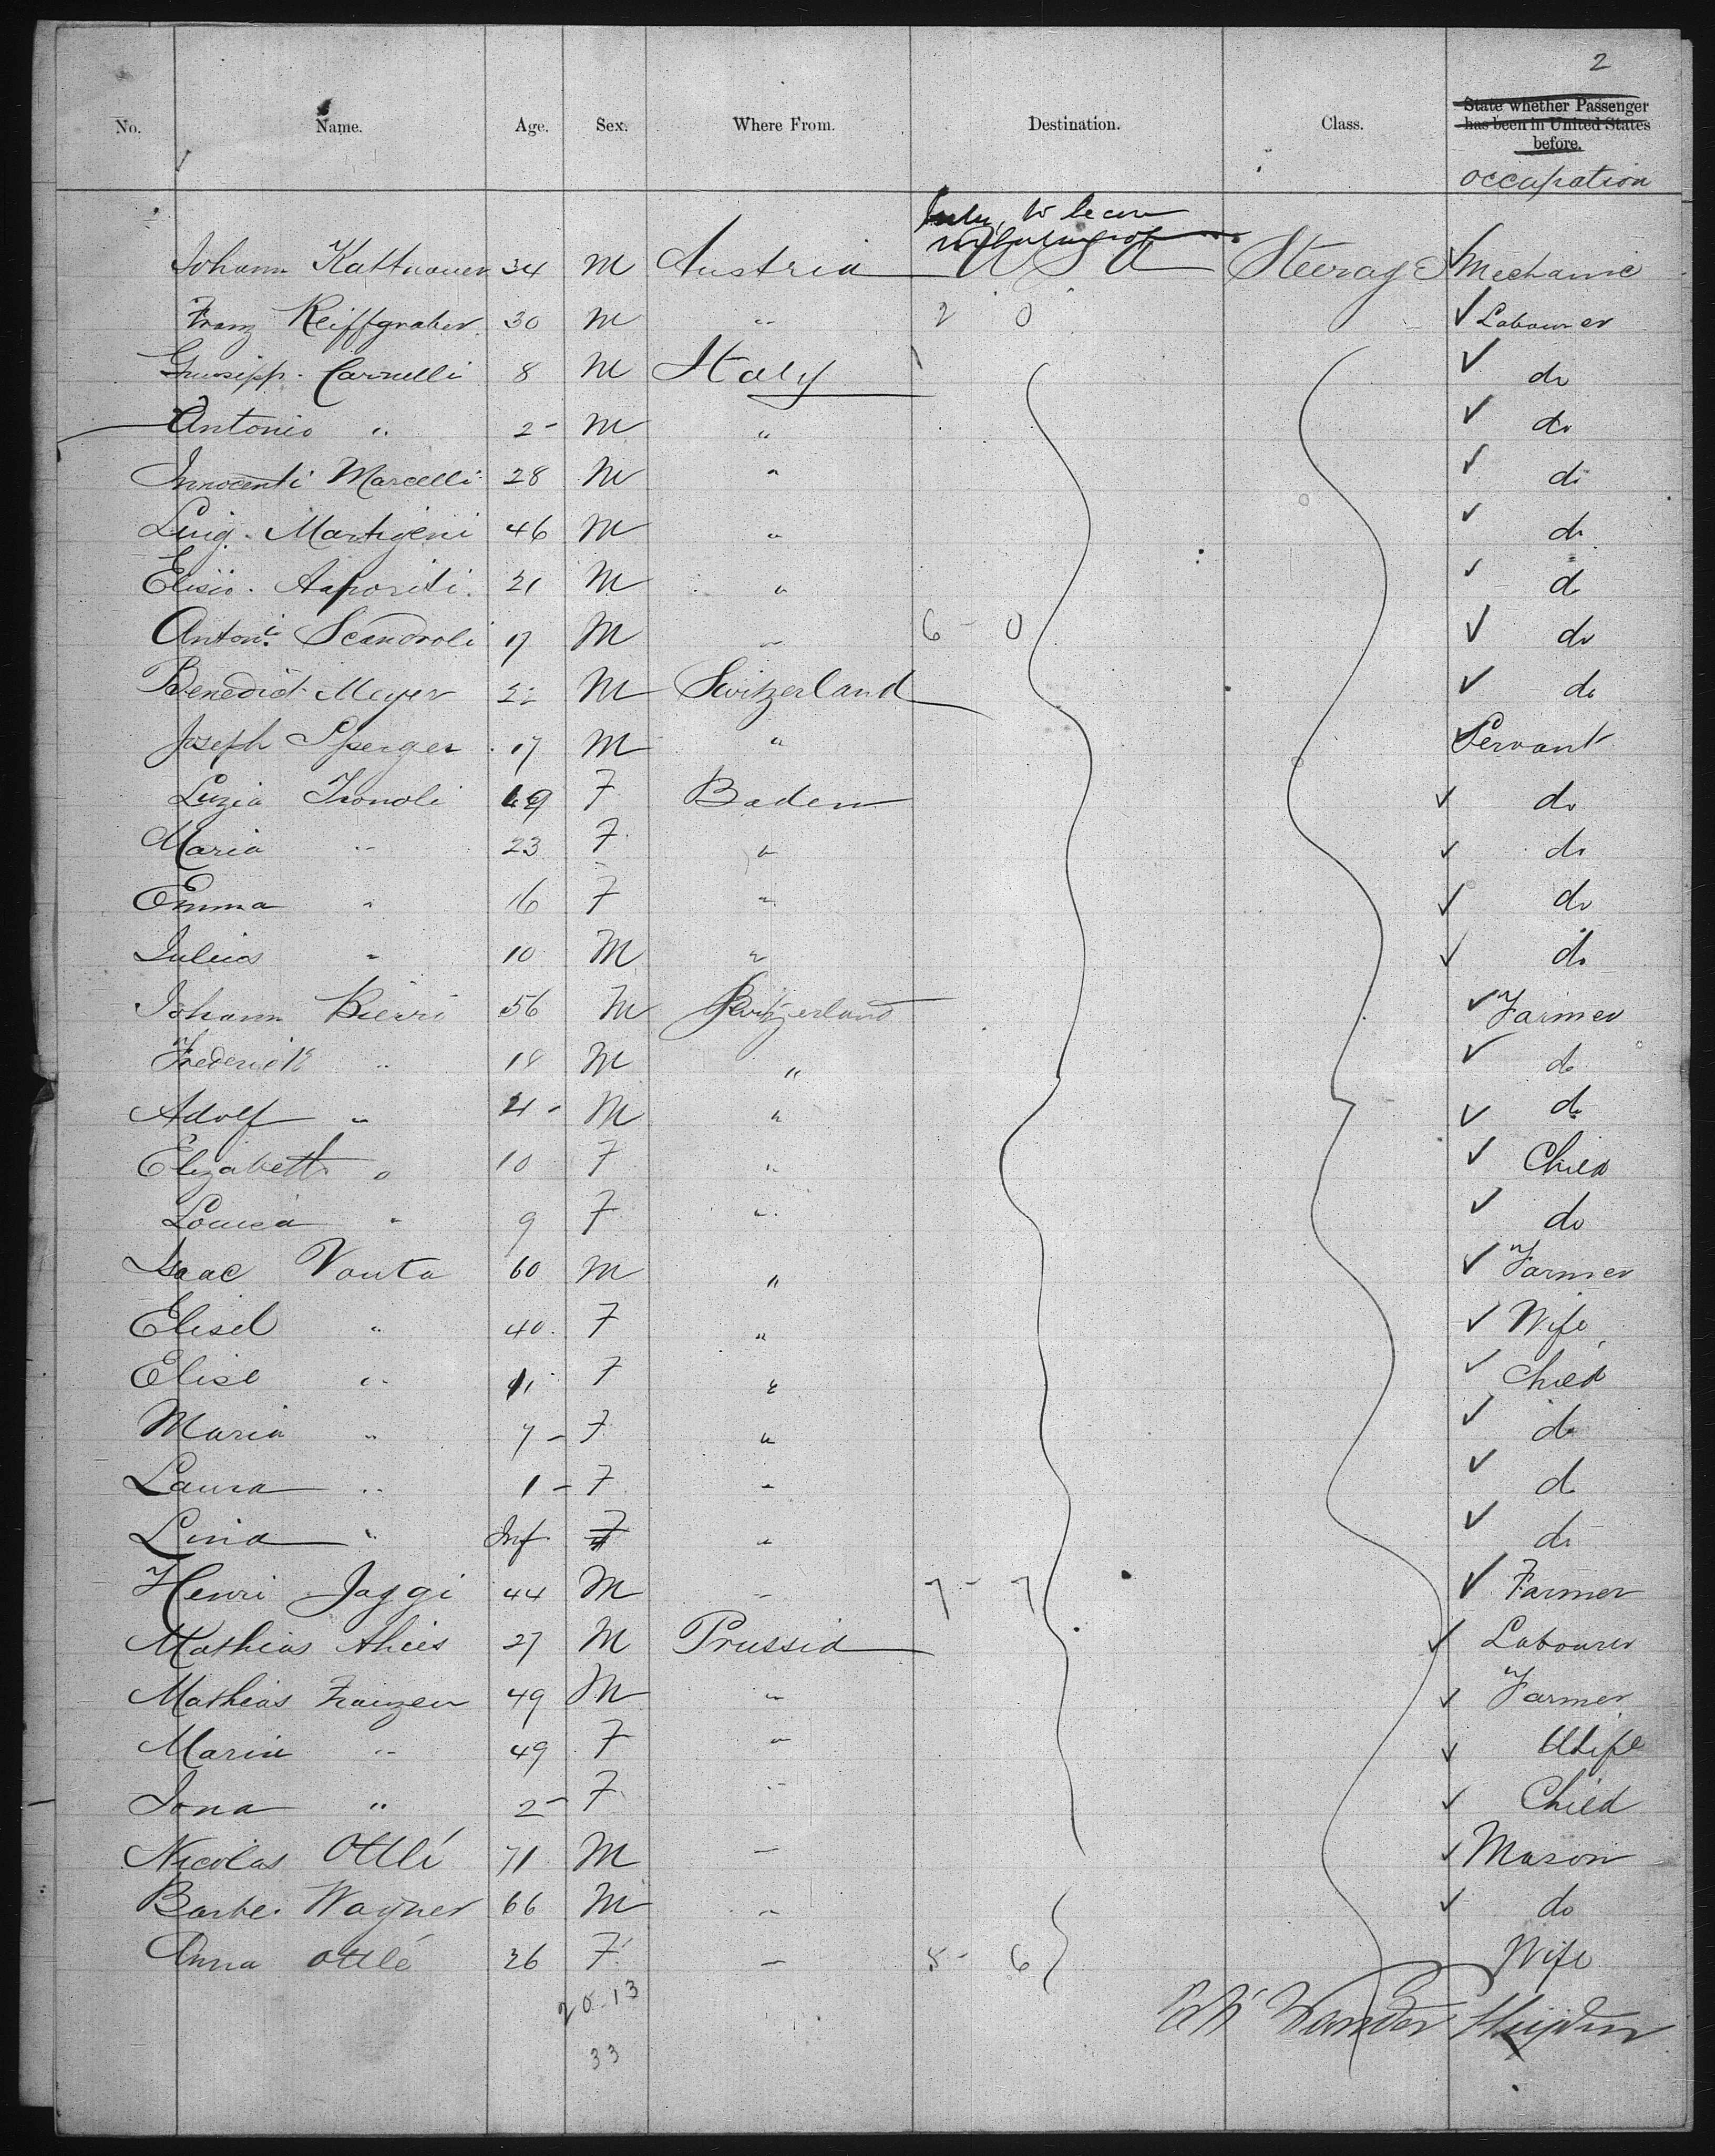 2
No. Name. Age. Sex. Where From. Destination. Class. State whether Passenger
has been in United States
before.
occupation
to become
Johann Kattnauer 34 M Austria U S A Steerage Mechanic
Franz Reiffgraber 30 M " 2 0 Labourer
Carnelli 8 M Italy do
Antonio " 2 - M " do
Innocenti Marcelli 28 M " do
Luig. Martigeni 46 M " do
Elisio. 21 M " do
Antoni. Scandroli 17 M " 6 - 0 do
Benedict Meyer 22 M Switzerland do
Joseph Sperger 17 M " Servant
Luzia Tronoli 49 F Baden do
Maria " 23 F " do
Emma " 16 F " do
Julius " 10 M " do
Johann Bierri 56 M Switzerland Farmer
Frederick " 18 M " do
Adolf " 4 - M " do
Elizabeth " 10 F " Child
Louisa " 9 F " do
Isaac Vauta 60 M " Farmer
Elisel " 40 F " Wife
Elise " 11 F " Child
Maria " 7 - F " do
Laura " 1 - F " do
Lina " Inf F " do
Henri Jaggi 44 M " 7 - 7 Farmer
Mathias 27 M Prussia Labourer
Mathias Franzen 49 M " Farmer
Maria " 49 F " Wife
Jona " 2 - F " Child
Nicolas Ottlé 71 M " Mason
Barbe. Wagner 66 M " do
Anna Ottlé 26 F " 5 - 6 Wife
20 - 13
33